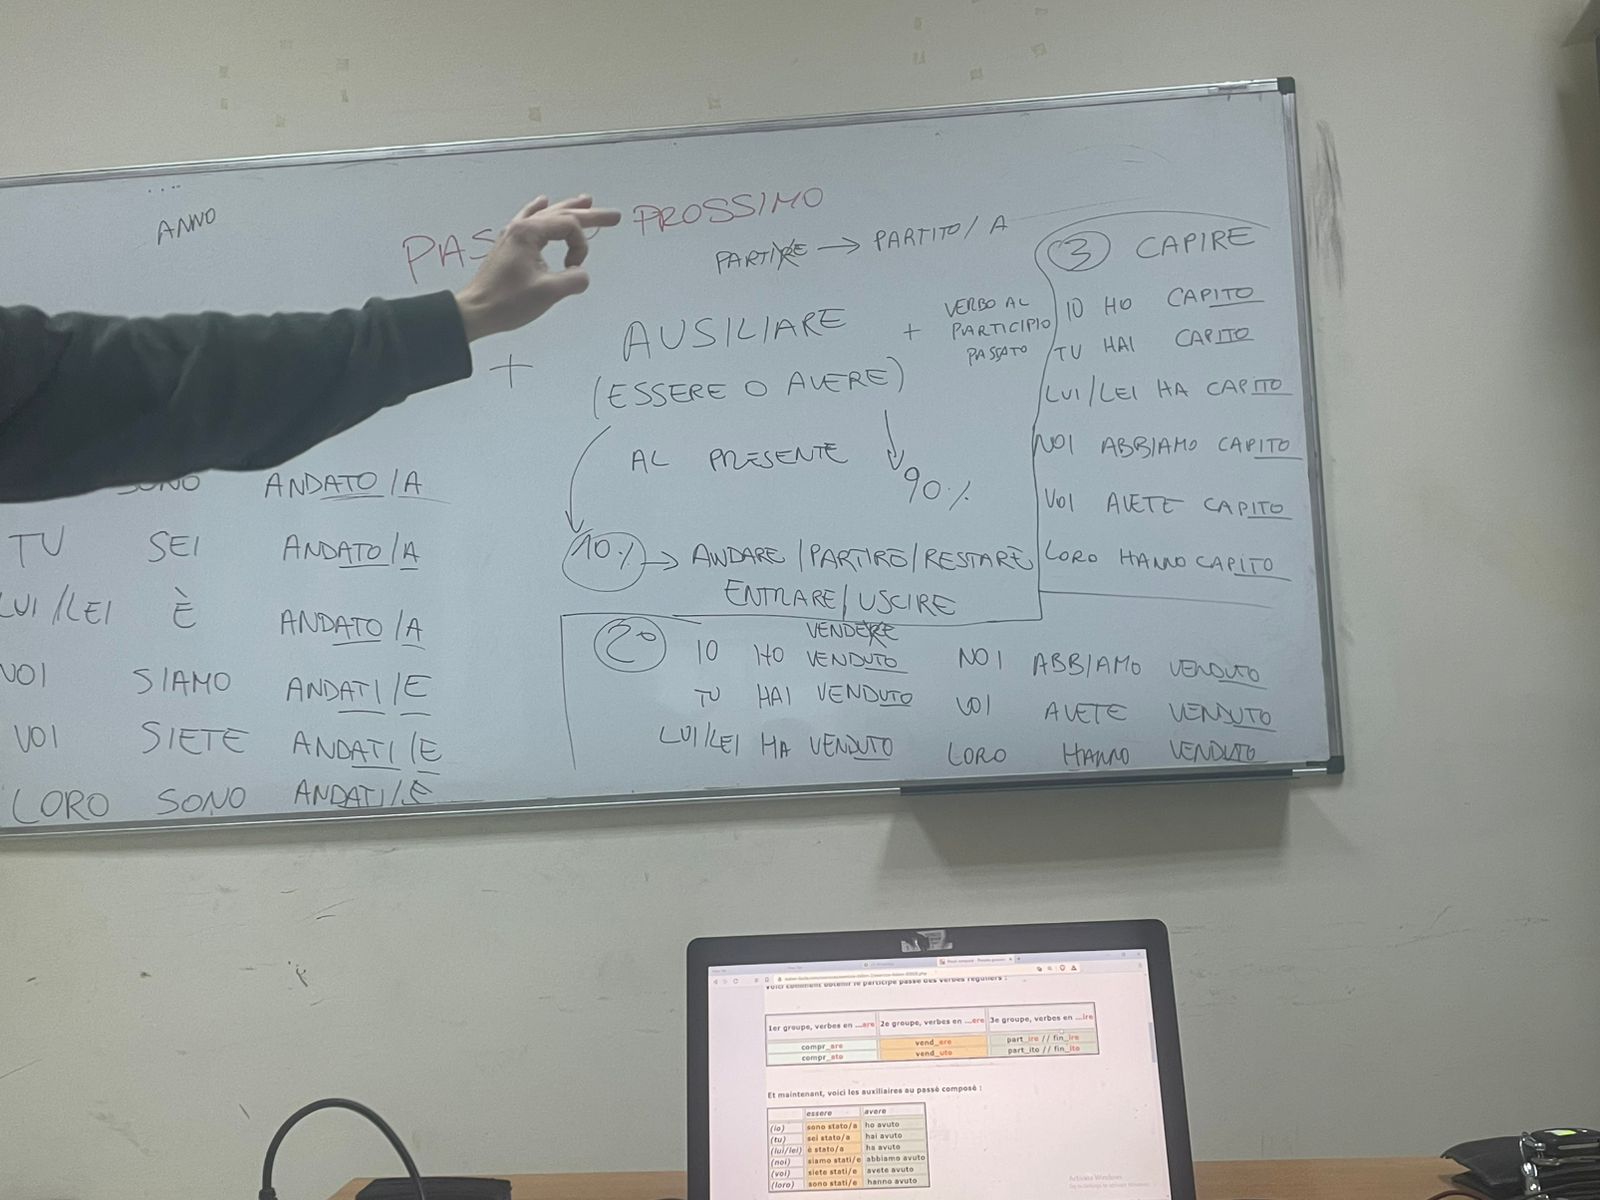 ANNO
PROSSIMO
PARTIRE → PARTITO/A
AUSILIARE
+
VERBO AL
PARTICIPIO
PASSATO
+
(ESSERE O AVERE)
AL PRESENTE
90%
10% → ANDARE/PARTIRE/RESTARE
ENTRARE/USCIRE
SONO ANDATO/A
TU SEI ANDATO/A
LUI/LEI È ANDATO/A
NOI SIAMO ANDATI/E
VOI SIETE ANDATI/E
LORO SONO ANDATI/E
3 CAPIRE
IO HO CAPITO
TU HAI CAPITO
LUI/LEI HA CAPITO
NOI ABBIAMO CAPITO
VOI AVETE CAPITO
LORO HANNO CAPITO
VENDERE
IO HO VENDUTO
TU HAI VENDUTO
LUI/LEI HA VENDUTO
NOI ABBIAMO VENDUTO
VOI AVETE VENDUTO
LORO HANNO VENDUTO
Voici comment obtenir le participe passé des verbes réguliers :
1er groupe, verbes en ...are 2e groupe, verbes en ...ere 3e groupe, verbes en ...ire
compr_are vend_ere part_ire // fin_ire
compr_ato vend_uto part_ito // fin_ito
Et maintenant, voici les auxiliaires au passé composé :
essere avere
(io) sono stato/a ho avuto
(tu) sei stato/a hai avuto
(lui/lei) è stato/a ha avuto
(noi) siamo stati/e abbiamo avuto
(voi) siete stati/e avete avuto
(loro) sono stati/e hanno avuto
Activate Windows